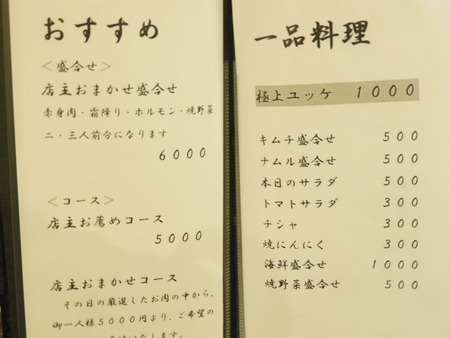 おすすめ
＜盛合せ＞
店主おまかせ盛合せ
赤身肉・霜降り・ホルモン・焼野菜
二・三人前分になります
6000
＜コース＞
店主お薦めコース
5000
店主おまかせコース
その日の厳選したお肉の中から、
御一人様5000円より、ご希望の
一品料理
極上ユッケ 1000
キムチ盛合せ 500
ナムル盛合せ 500
本日のサラダ 500
トマトサラダ 300
チシャ 300
焼にんにく 300
海鮮盛合せ 1000
焼野菜盛合せ 500